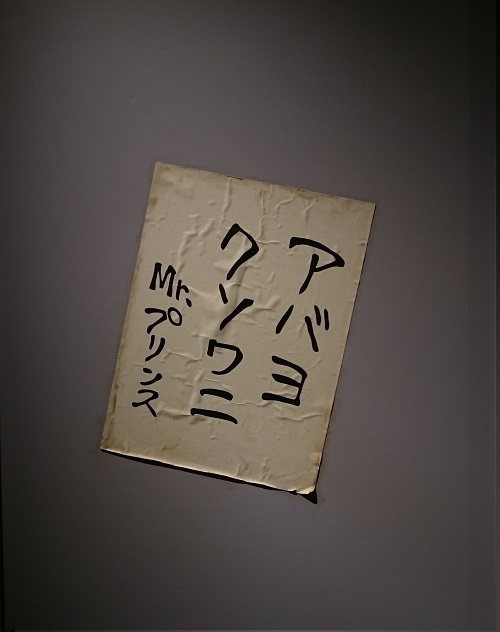 アバヨ
クソワニ
Mr.プリンス